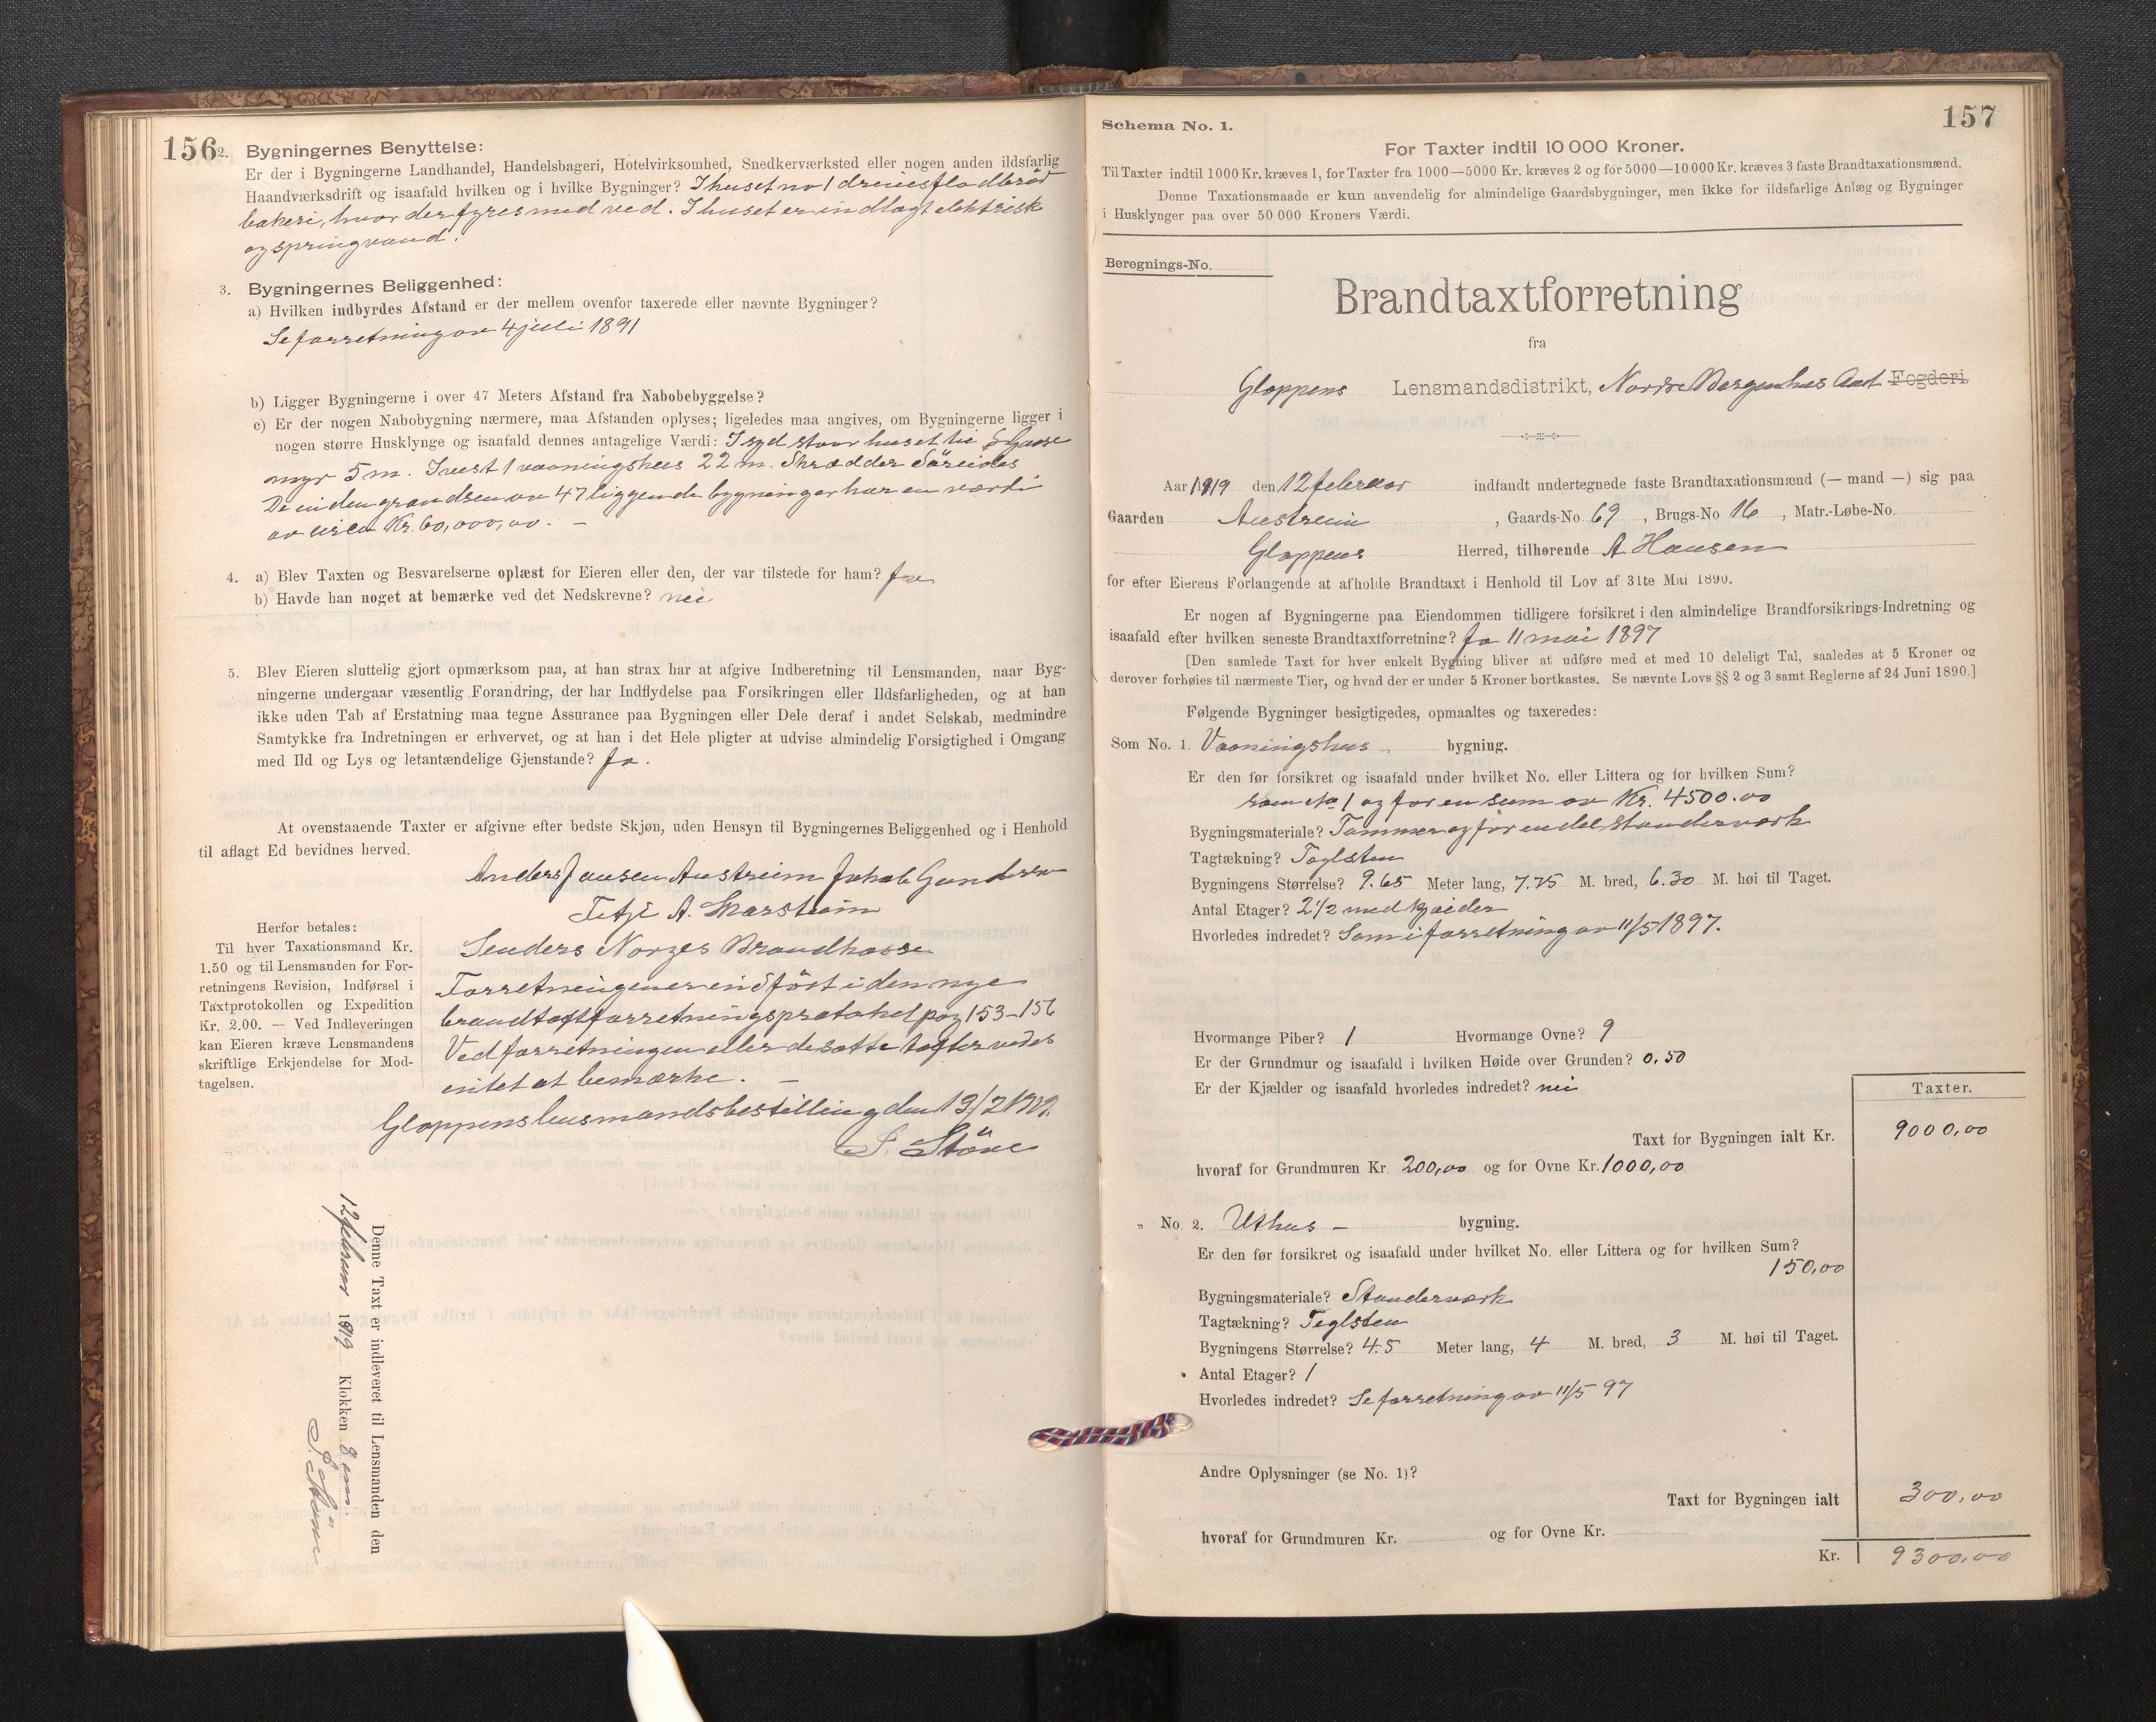 156
2. Bygningernes Benyttelse:
Er der i Bygningerne Landhandel, Handelsbageri, Hotelvirksomhed, Snedkerværksted eller nogen anden ildsfarlig
Haandværksdrift og isaafald hvilken og i hvilke Bygninger? I huset no 1 drives fladbröd
bakeri, hvor der fyres med ved. I huset er indlagt elektrisk
og springvand.
3. Bygningernes Beliggenhed:
a) Hvilken indbyrdes Afstand er der mellem ovenfor taxerede eller nævnte Bygninger?
Se forretning av 4 juli 1891
b) Ligger Bygningerne i over 47 Meters Afstand fra Nabobebyggelse?
c) Er der nogen Nabobygning nærmere, maa Afstanden oplyses; ligeledes maa angives, om Bygningerne ligger i
nogen større Husklynge og isaafald dennes antagelige Værdi: I syd staar huset til
myr 5 m. I vest 1 vaaningshus 22 m. Skrædder Söreides
De inden grændsen av 47 liggende bygninger har en værdi
av cirea Kr. 60,000,00. –
4. a) Blev Taxten og Besvarelserne oplæst for Eieren eller den, der var tilstede for ham? Ja
b) Havde han noget at bemærke ved det Nedskrevne? nei
5. Blev Eieren sluttelig gjort opmærksom paa, at han strax har at afgive Indberetning til Lensmanden, naar Byg-
ningerne undergaar væsentlig Forandring, der har Indflydelse paa Forsikringen eller Ildsfarligheden, og at han
ikke uden Tab af Erstatning maa tegne Assurance paa Bygningen eller Dele deraf i andet Selskab, medmindre
Samtykke fra Indretningen er erhvervet, og at han i det Hele pligter at udvise almindelig Forsigtighed i Omgang
med Ild og Lys og letantændelige Gjenstande? Ja.
At ovenstaaende Taxter er afgivne efter bedste Skjøn, uden Hensyn til Bygningernes Beliggenhed og i Henhold
til aflagt Ed bevidnes herved.
Anders Jansen Austreim Jakob Gundersen
A. Marstein
Herfor betales:
Til hver Taxationsmand Kr.
1.50 og til Lensmanden for For-
retningens Revision, Indførsel i
Taxtprotokollen og Expedition
Kr. 2.00. — Ved Indleveringen
kan Eieren kræve Lensmandens
skriftlige Erkjendelse for Mod-
tagelsen.
Sendes Norges Brandkasse
Forretningen er indfört i den nye
brandtaxtforretningsprotokol pag 153–156
Ved forretningen eller de satte taxter vedes
intet at bemærke. –
Gloppens lensmandsbestilling den 13/2 1919.
S. Störe
Denne Taxt er indleveret til Lensmanden den
12 februar 1919 Klokken 8 em.
S. Störe
157
Schema No. 1.
For Taxter indtil 10 000 Kroner.
Til Taxter indtil 1000 Kr. kræves 1, for Taxter fra 1000—5000 Kr. kræves 2 og for 5000—10000 Kr. kræves 3 faste Brandtaxationsmænd.
Denne Taxationsmaade er kun anvendelig for almindelige Gaardsbygninger, men ikke for ildsfarlige Anlæg og Bygninger
i Husklynger paa over 50 000 Kroners Værdi.
Beregnings-No.
Brandtaxtforretning
fra
Gloppens Lensmandsdistrikt, Nordre Bergenhus Amt Fogderi
Aar 1919 den 12 februar indfandt undertegnede faste Brandtaxationsmænd (— mand —) sig paa
Gaarden Austreim, Gaards-No 69, Brugs-No 16, Matr.-Løbe-No.
Gloppens Herred, tilhørende A Hansen
for efter Eierens Forlangende at afholde Brandtaxt i Henhold til Lov af 31te Mai 1890.
Er nogen af Bygningerne paa Eiendommen tidligere forsikret i den almindelige Brandforsikrings-Indretning og
isaafald efter hvilken seneste Brandtaxtforretning? Ja 11 mai 1897
[Den samlede Taxt for hver enkelt Bygning bliver at udføre med et med 10 deleligt Tal, saaledes at 5 Kroner og
derover forhøies til nærmeste Tier, og hvad der er under 5 Kroner bortkastes. Se nævnte Lovs §§ 2 og 3 samt Reglerne af 24 Juni 1890.]
Følgende Bygninger besigtigedes, opmaaltes og taxeredes:
Som No. 1. Vaaningshus bygning.
Er den før forsikret og isaafald under hvilket No. eller Littera og for hvilken Sum?
som No 1 og for en sum av Kr. 4500.00
Bygningsmateriale? Tømmer og for en del standerværk
Tagtækning? Taglsten
Bygningens Størrelse? 9.65 Meter lang, 7.75 M. bred, 6.30 M. høi til Taget.
Antal Etager? 2 1/2 med kjælder
Hvorledes indredet? Som i forretning av 11/5 1897.
Hvormange Piber? 1 Hvormange Ovne? 9
Er der Grundmur og isaafald i hvilken Høide over Grunden? 0.50
Er der Kjælder og isaafald hvorledes indredet? nei
Taxter.
Taxt for Bygningen ialt Kr. 9000,00
hvoraf for Grundmuren Kr. 200,00 og for Ovne Kr. 1000,00
„ No. 2. Uthus – bygning.
Er den før forsikret og isaafald under hvilket No. eller Littera og for hvilken Sum?
150,00
Bygningsmateriale? Standerværk
Tagtækning? Teglsten
Bygningens Størrelse? 4.5 Meter lang, 4 M. bred, 3 M. høi til Taget.
Antal Etager? 1
Hvorledes indredet? Se forretning av 11/5 97
Andre Oplysninger (se No. 1)?
Taxt for Bygningen ialt 300,00
hvoraf for Grundmuren Kr. og for Ovne Kr.
Kr. 9300,00